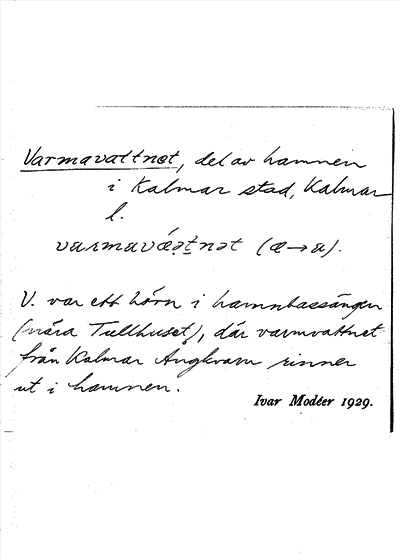 Varmavattnet, del av hamnen
i Kalmar stad, Kalmar
l.
varmavǽə̣t̠nət (æ→a).
V. var ett hörn i hamnbassängen
(nära Tullhuset), där varmvattnet
från Kalmar Ångkvarn rinner
ut i hamnen.
Ivar Modéer 1929.